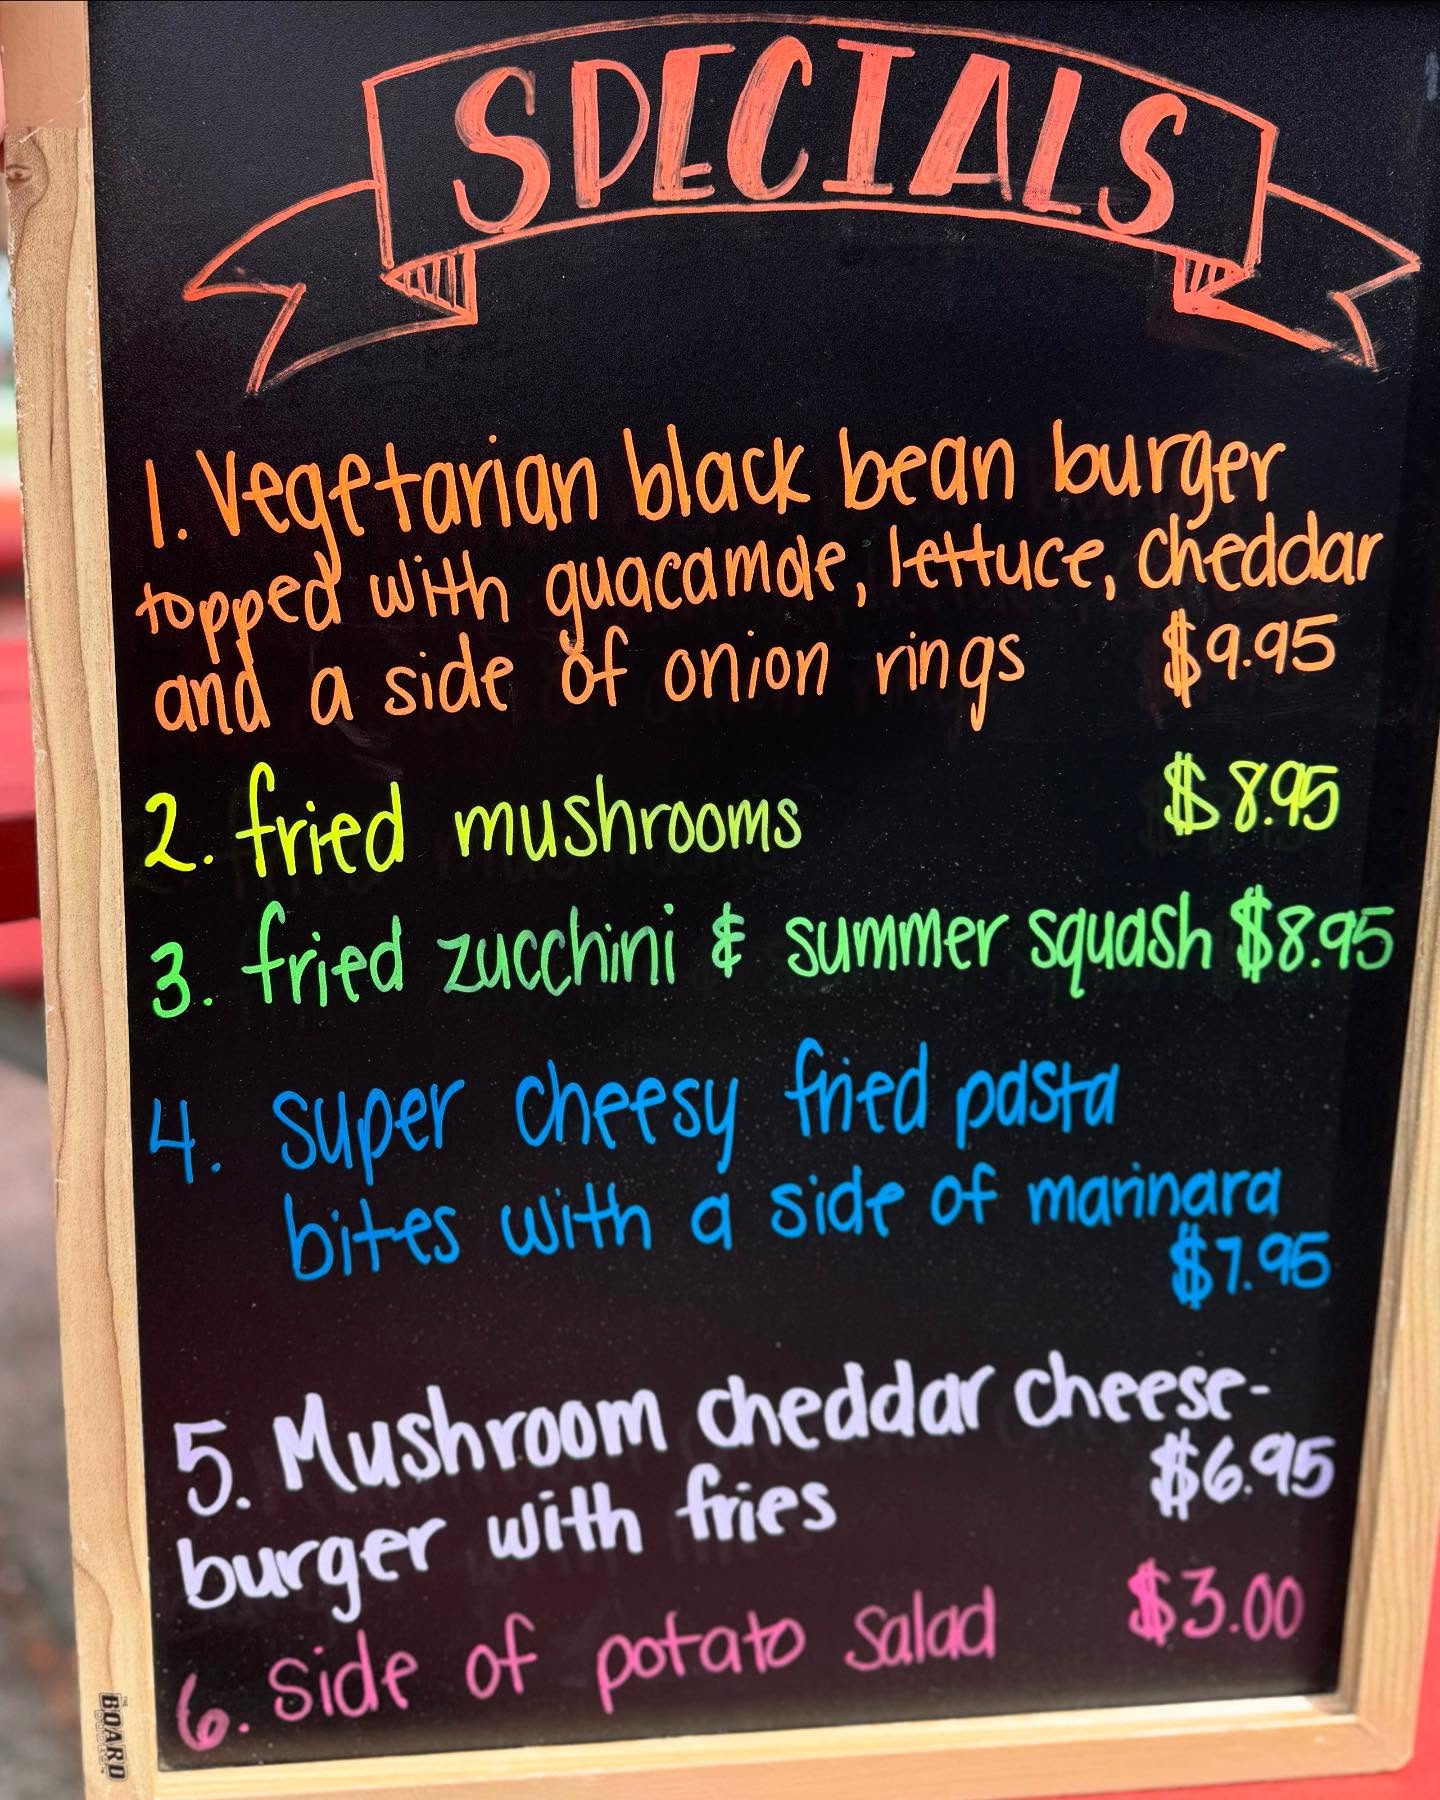 SPECIALS
1. Vegetarian black bean burger
topped with guacamole, lettuce, cheddar
and a side of onion rings $9.95
2. fried mushrooms $8.95
3. fried zucchini & summer squash $8.95
4. super cheesy fried pasta
bites with a side of marinara
$7.95
5. Mushroom cheddar cheese-
burger with fries $6.95
6. side of potato salad $3.00
THE
BOARD